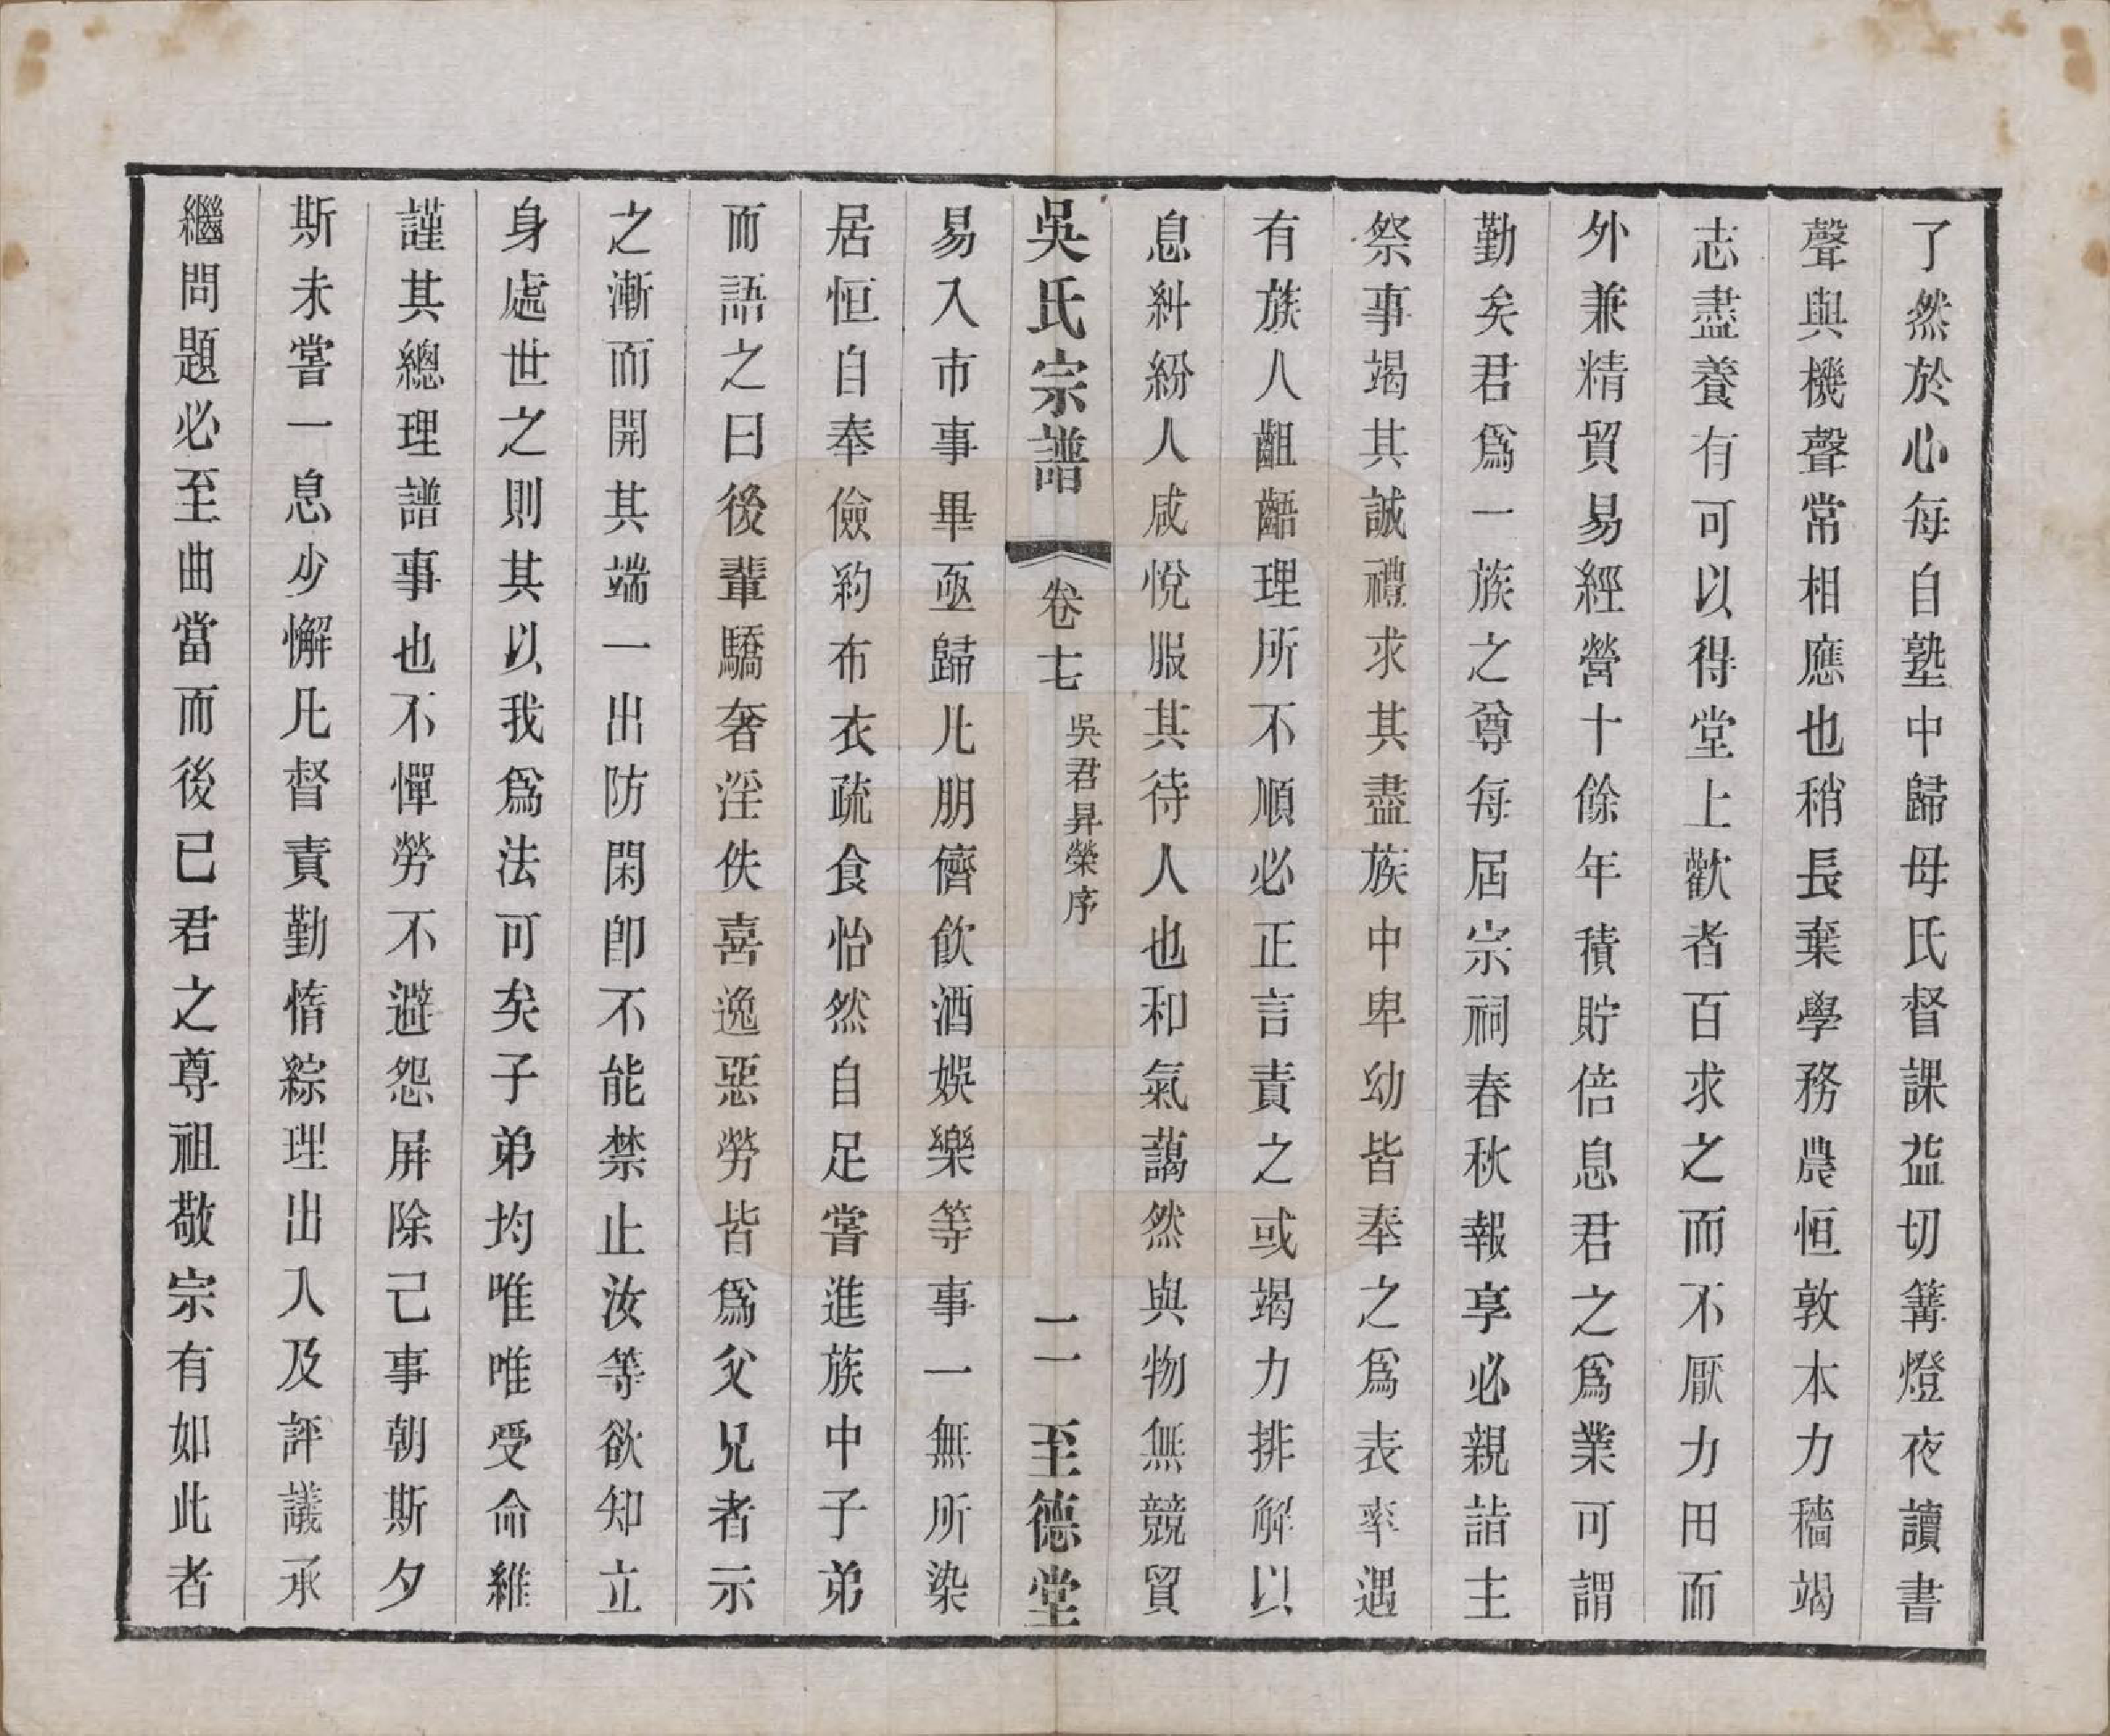 了然於心每自塾中歸母氏督課益切篝燈夜讀書
聲與機聲常相應也稍長棄學務農恒敦本力穡竭
志盡養有可以得堂上歡者百求之而不厭力田而
外兼精貿易經營十餘年積貯倍息君之爲業可謂
勤矣君爲一族之尊每屆宗祠春秋報享必親詣主
祭事竭其誠禮求其盡族中卑幼皆奉之爲表率遇
有族人齟齬理所不順必正言責之或竭力排解以
息糾紛人咸悅服其待人也和氣藹然與物無競貿
吳氏宗譜 卷七 吳君昇榮序 二 至德堂
易入市事畢亟歸凡朋儕飮酒娛樂等事一無所染
居恒自奉儉約布衣疏食怡然自足嘗進族中子弟
而語之曰後輩驕奢淫佚喜逸惡勞皆爲父兄者示
之漸而開其端一出防閑卽不能禁止汝等欲知立
身處世之則其以我爲法可矣子弟均唯唯受命維
謹其總理譜事也不憚勞不避怨屏除己事朝斯夕
斯未嘗一息少懈凡督責勤惰綜理出入及評議承
繼問題必至曲當而後已君之尊祖敬宗有如此者